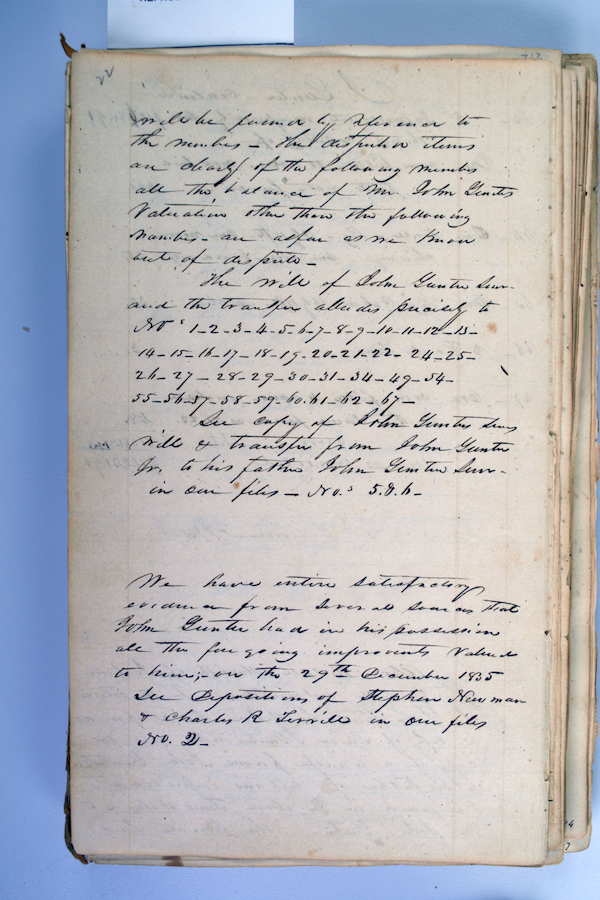 22
will be found by reference to
the numbers – the disputed items
are clearly of the following numbers
all the balance of Mr. John Gunters
Valuation other than the following
numbers – are as far as we know
out of dispute –
The Will of John Gunter Senr.
and the transfer alludes precisely to
No.s 1–2–3–4–5–6–7–8–9–10–11–12–13–
14–15–16–17–18–19–20–21–22–24–25–
26–27–28–29–30–31–34–49–54–
55–56–57–58–59–60.61–62–67–
See copy of John Gunters Senrs
Will & transfer from John Gunter
Jr. to his father John Gunter Senr.
in our files – No.s 5.&.6–
We have entire satisfactory
evidence from several sources that
John Gunter had in his possession
all the foregoing improvents Valued
to him;– on the 29th December 1835
See Depositions of Stephen Newman
& Charles R
in our files
No. 2–